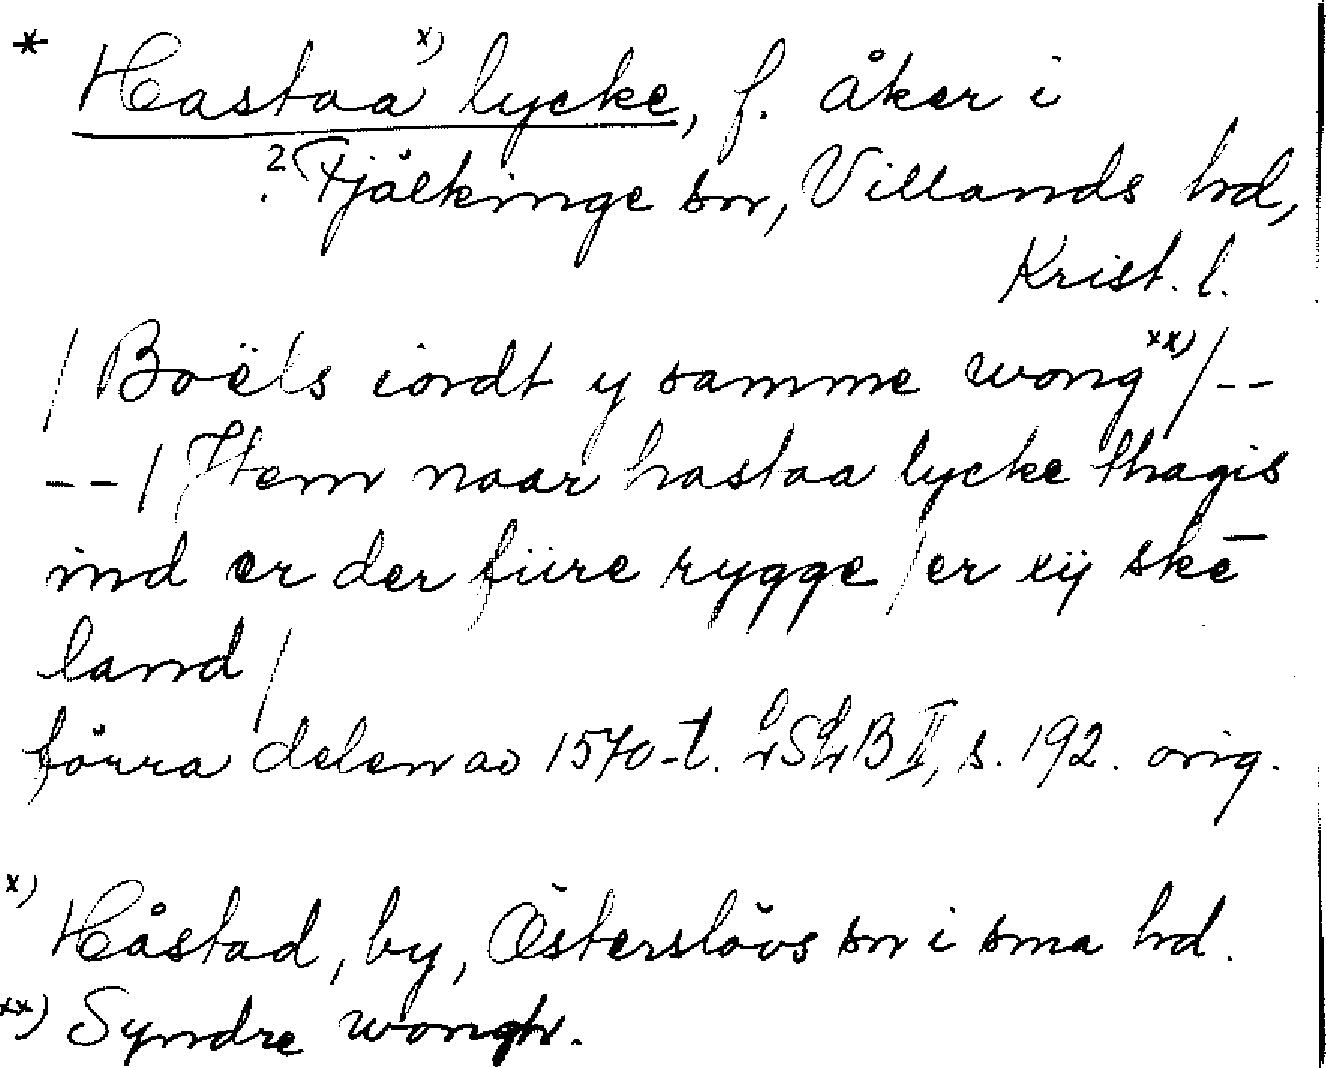 * Hastaa x) lycke, f. åker i
? Fjälkinge sn, Villands hd,
Krist. l.
/ Boëls iordt y samme wong xx) / --
-- / Jtem naar hastaa lycke thagis
ind er der fiire rygge / er xij skē
land /
förra delen av 1570-t. LSLB II, s. 192. orig.
x) Håstad, by, Österslövs sn i sma hd.
xx) Syndre wongh.